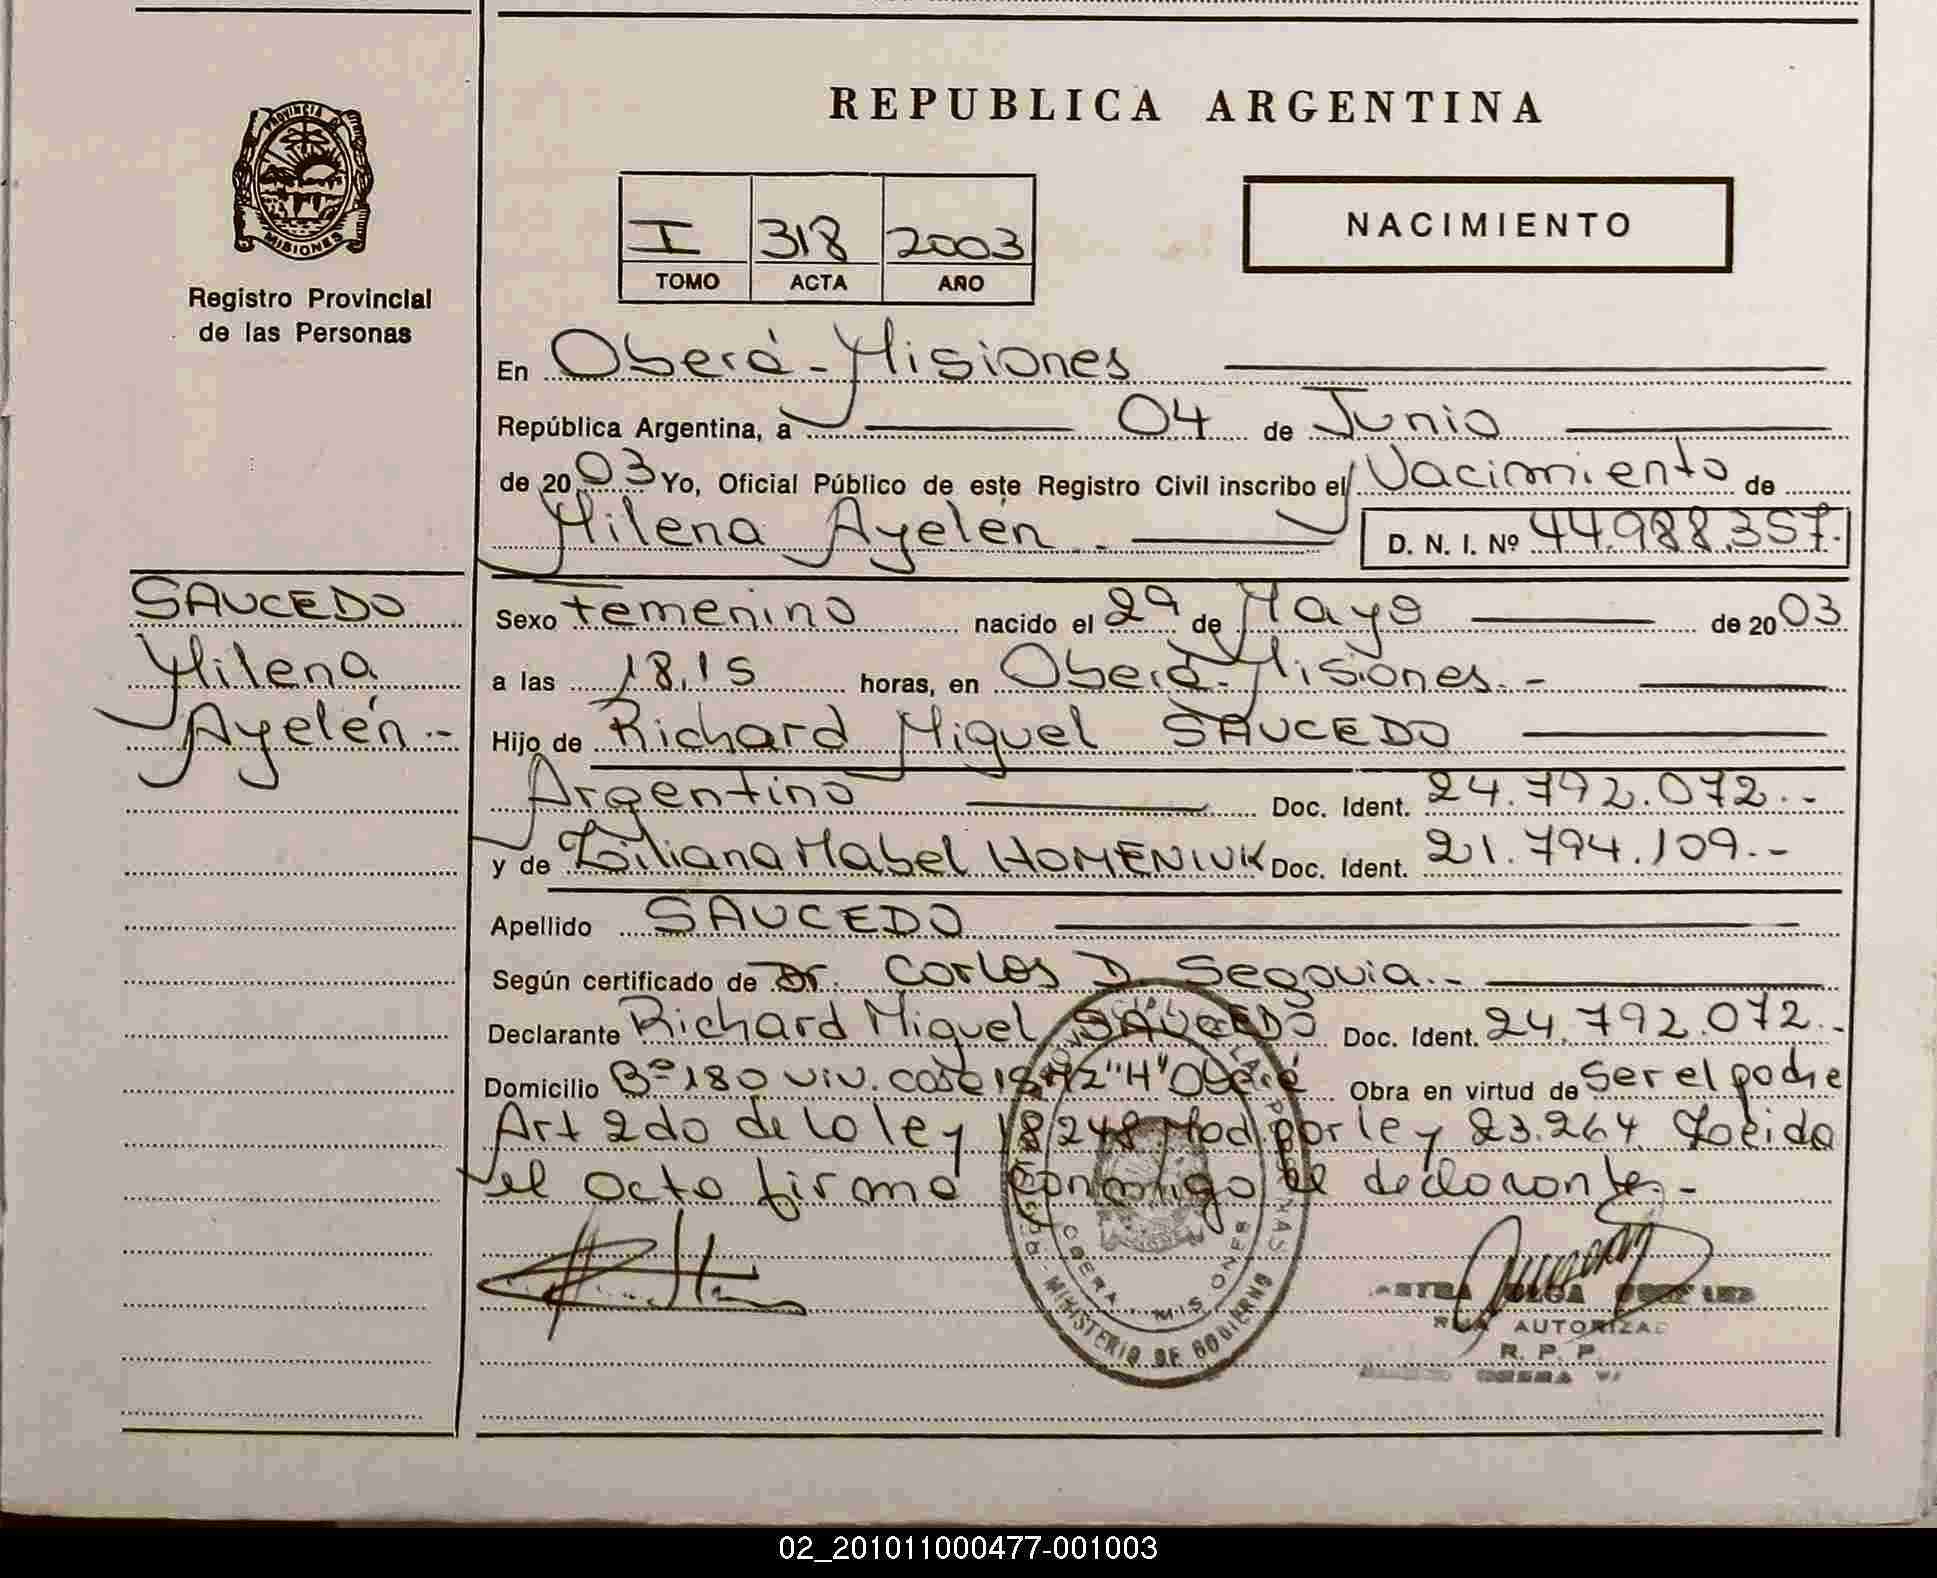 REPUBLICA ARGENTINA
PROVINCIA DE
MISIONES
Registro Provincial
de las Personas
I 318 2003
TOMO ACTA AÑO
NACIMIENTO
En Oberá - Misiones
República Argentina, a 04 de Junio
de 2003 Yo, Oficial Público de este Registro Civil inscribo el Nacimiento de
Milena Ayelén. D. N. I. Nº 44.988.357.
SAUCEDO
Milena
Ayelén.-
Sexo Femenino nacido el 29 de Mayo de 2003
a las 18,15 horas, en Oberá-Misiones.-
Hijo de Richard Miguel SAUCEDO
Argentino Doc. Ident. 24.792.072.-
y de Liliana Mabel HOMENIUK Doc. Ident. 21.794.109.-
Apellido SAUCEDO
Según certificado de Dr. Carlos D Segovia.-
Declarante Richard Miguel SAUCEDO Doc. Ident. 24.792.072.-
Domicilio Bº 180 viv. casa "H" Oberá Obra en virtud de Ser el padre
Art 2do de la ley 18248 Mod. por ley 23.264. Leida
el acta firma conmigo el declarante.-
OBERA - MISIONES
MINISTERIO DE GOBIERNO
AUTORIZAD
R. P. P.
OBERA
02_201011000477-001003